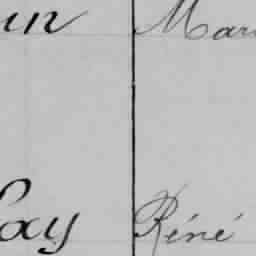 un Mar
lay Réné